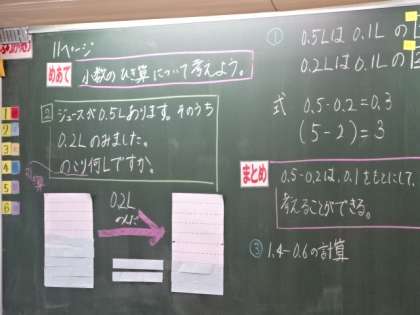 11ページ
めあて 小数のひき算について考えよう。
② ジュースが0.5Lあります。そのうち
0.2Lのみました。
のこり何Lですか。
0.2L
のんだ
1
2
3
4
5
6
① 0.5Lは0.1Lの
0.2Lは0.1Lの
式 0.5-0.2=0.3
(5-2)=3
まとめ
0.5-0.2は、0.1をもとにして、
考えることができる。
③ 1.4-0.6の計算